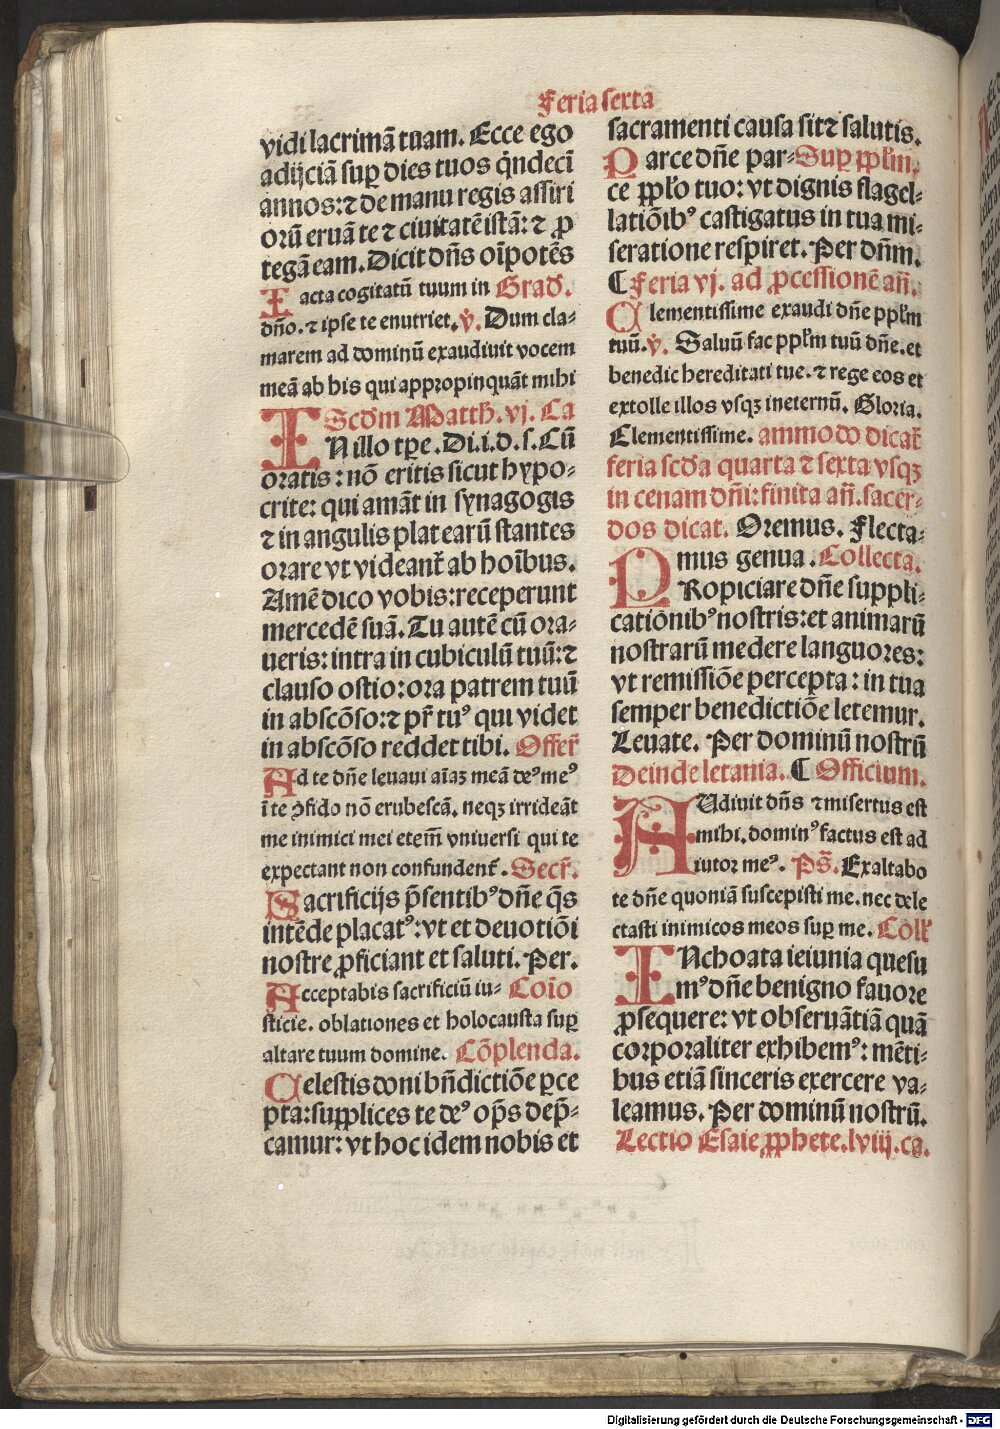 Feria sexta
vidi lacrimā tuam. Ecce ego
adijciā suꝑ dies tuos q̄ndecī
annos: ⁊ de manu regis assiri
orū eruā te ⁊ ciuitatē istā: ⁊ ꝓ
tegā eam. Dicit dn̄s oīpotēs
Iacta cogitatū tuum in Grad̄.
dn̄o. ⁊ ipse te enutriet. v̄. Dum cla⸗
marem ad dominū exaudiuit vocem
meā ab his qui appropinquāt mihi
Scd̄m Matth. vj. Ca
IN illo tꝑe. Di. i. d. s. Cū
oratis: nō eritis sicut hypo⸗
crite: qui amāt in synagogis
⁊ in angulis platearū stantes
orare vt videant᷑ ab hoībus.
Amē dico vobis: receperunt
mercedē suā. Tu autē cū ora⸗
ueris: intra in cubiculū tuū: ⁊
clauso ostio: ora patrem tuū
in abscōso: ⁊ pr̄ tuꝰ qui videt
in abscōso reddet tibi. Offer᷑
Ad te dn̄e leuaui aīaꝫ meā deꝰ meꝰ
ī te ꝯfido nō erubescā. neqꝫ irrideāt
me inimici mei etem̄ vniuersi qui te
expectant non confundent᷑. Secr᷑.
Sacrificijs p̄sentibꝰ dn̄e q̄s
intēde placatꝰ: vt et deuotiōi
nostre ꝓficiant et saluti. Per.
Acceptabis sacrificiū iu⸗ Coīo
sticie. oblationes et holocausta suꝑ
altare tuum domine. Cōplenda.
Celestis doni bn̄dictiōe ꝑce
pta: supplices te deꝰ op̄s dep̄⸗
camur: vt hoc idem nobis et
sacramenti causa sit ⁊ salutis.
Parce dn̄e par⸗ Suꝑ ppl̄m.
ce ppl̄o tuo: vt dignis flagel⸗
latiōibꝰ castigatus in tua mi⸗
seratione respiret. Per dn̄m.
¶ Feria vj. ad ꝓcessionē an̄.
Clementissime exaudi dn̄e ppl̄m
tuū. v̄. Saluū fac ppl̄m tuū dn̄e. et
benedic hereditati tue. ⁊ rege eos et
extolle illos vsqꝫ ineternū. Gloria.
Clementissime. ammodo dicat᷑
feria scd̄a quarta ⁊ sexta vsqꝫ
in cenam dn̄i: finita an̄. sacer⸗
dos dicat. Oremus. Flecta⸗
mus genua. Collecta.
PRopiciare dn̄e suppli⸗
cationibꝰ nostris: et animarū
nostrarū medere languores:
vt remissiōe percepta: in tua
semper benedictiōe letemur.
Leuate. Per dominū nostrū
Deinde letania. ¶ Officium.
AUdiuit dn̄s ⁊ misertus est
mihi. dominꝰ factus est ad
iutor meꝰ. Ps̄. Exaltabo
te dn̄e quoniā suscepisti me. nec dele
ctasti inimicos meos suꝑ me. Coll᷑
INchoata ieiunia quesu
mꝰ dn̄e benigno fauore
ꝓsequere: vt obseruātiā quā
corporaliter exhibemꝰ: mēti⸗
bus etiā sinceris exercere va⸗
leamus. Per dominū nostrū.
Lectio Esaie ꝓphete. lviij. ca.
Digitalisierung gefördert durch die Deutsche Forschungsgemeinschaft - DFG